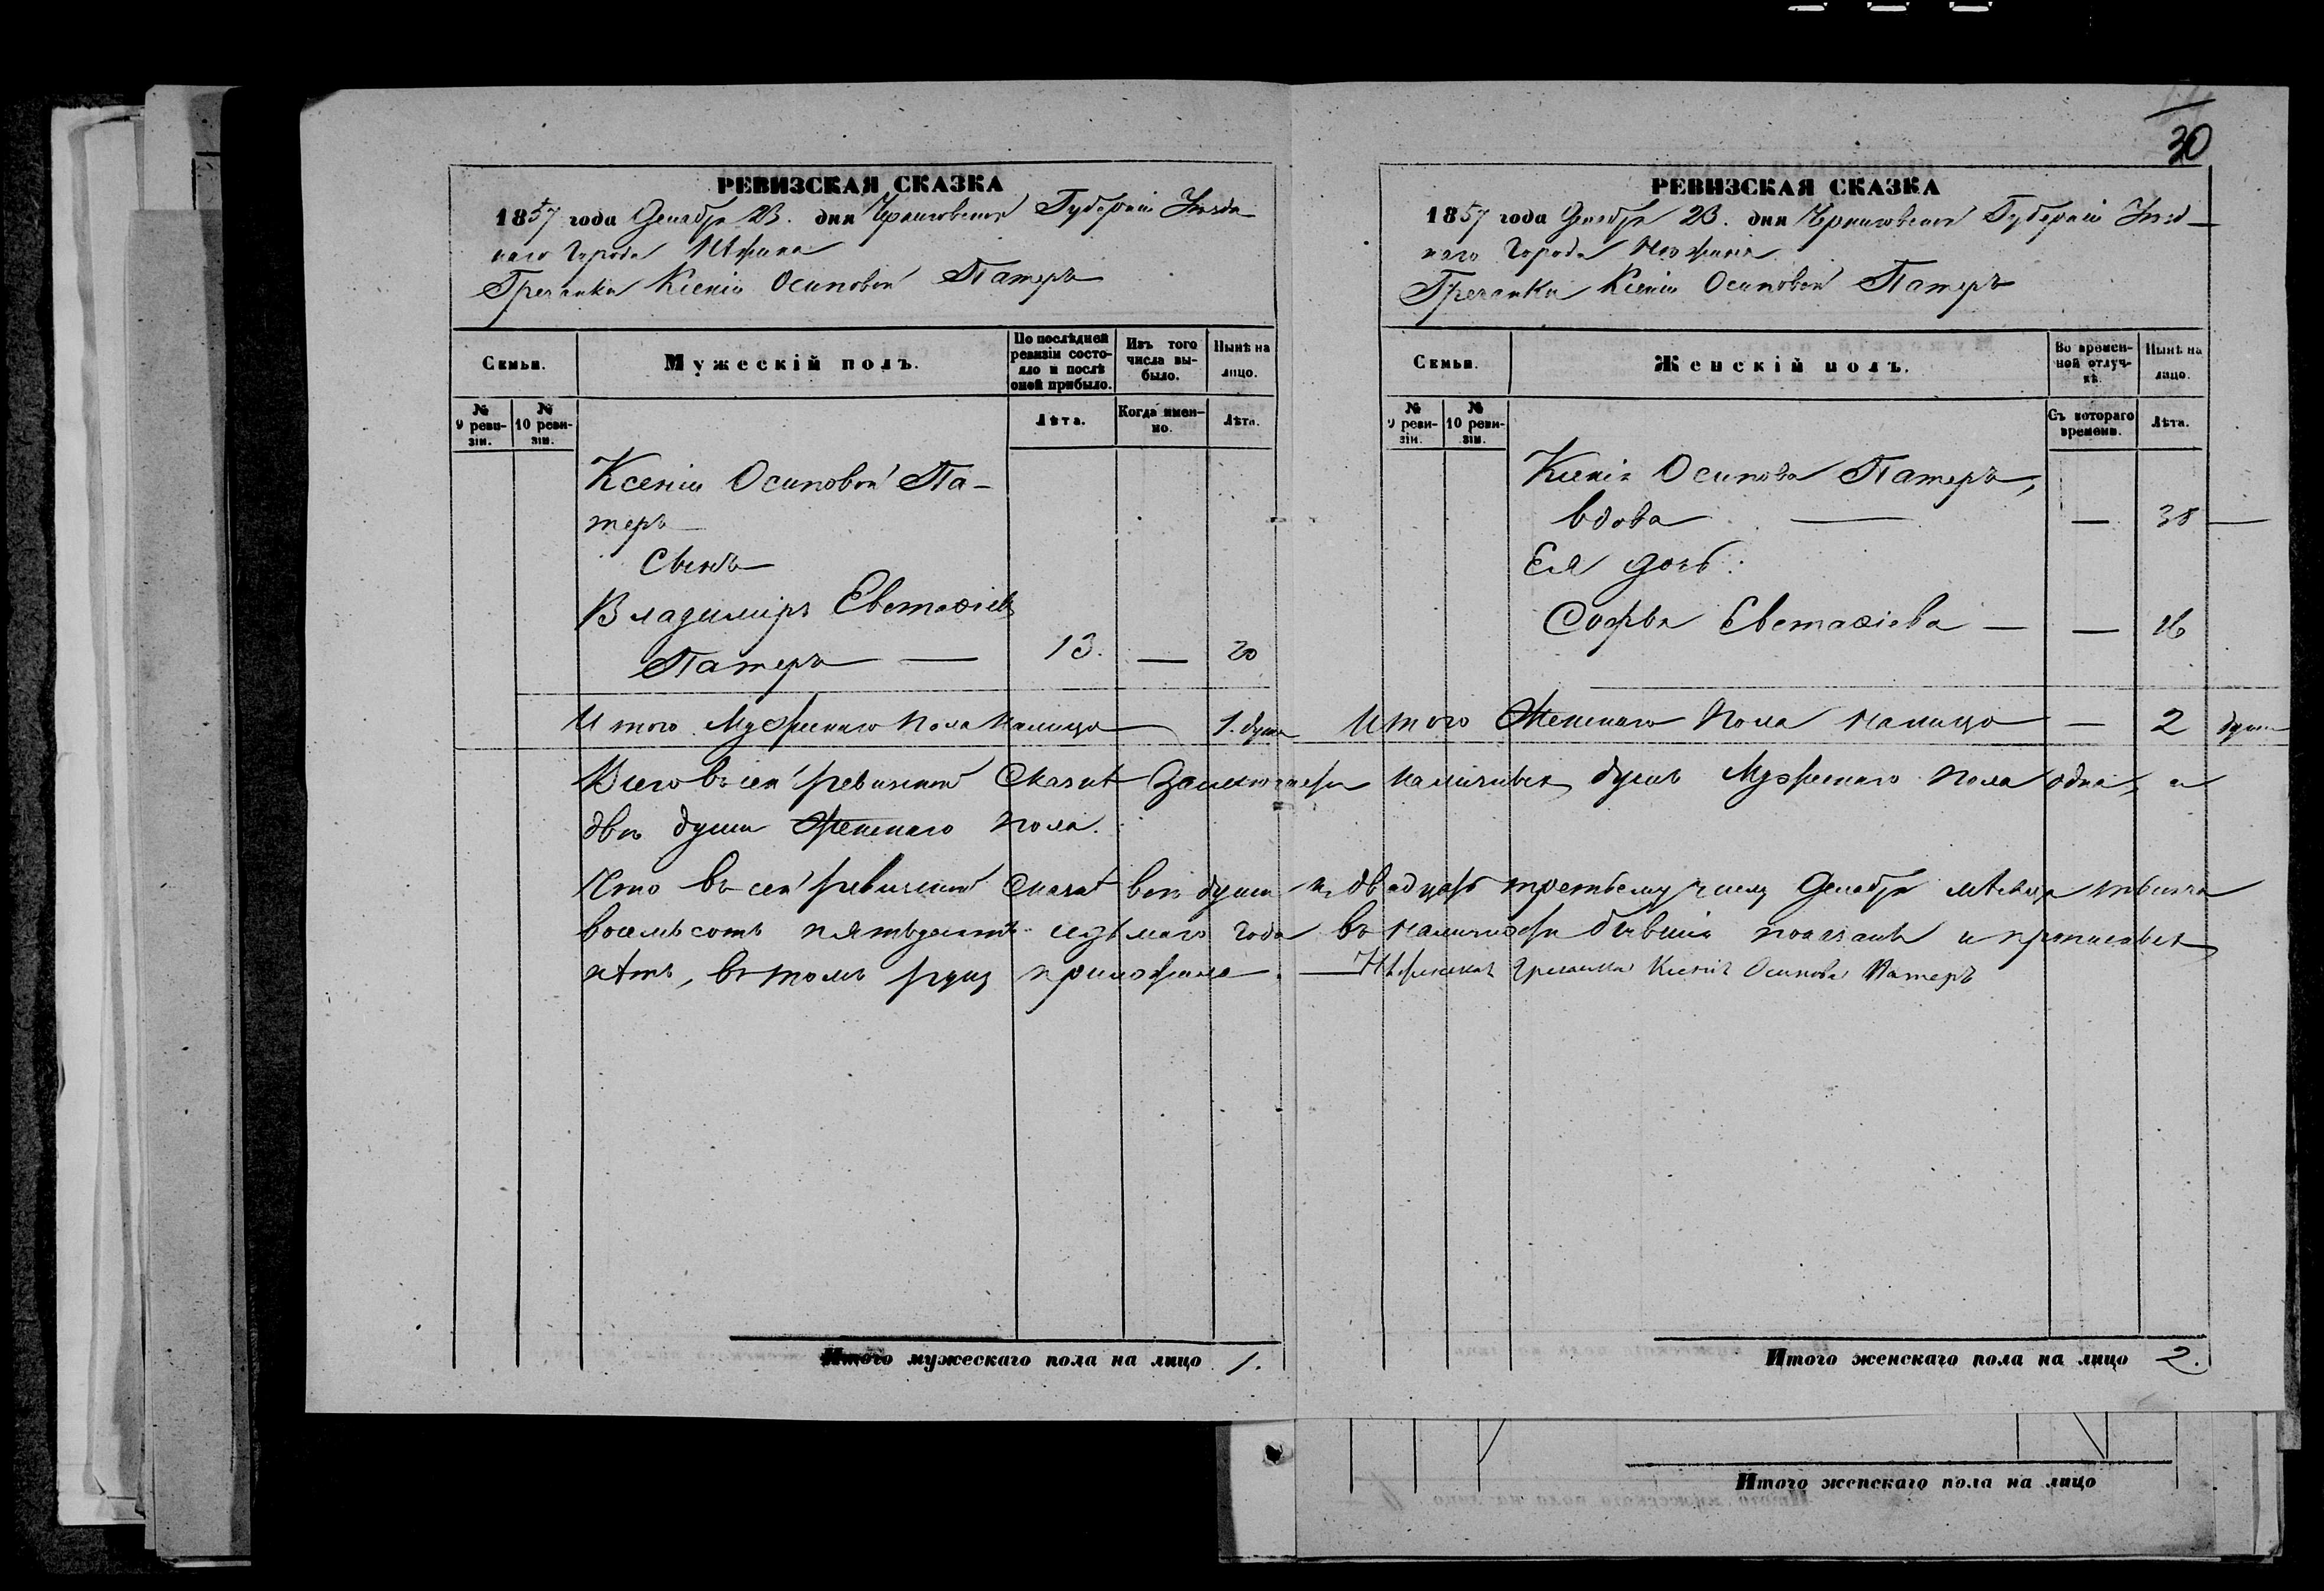 30
РЕВИЗСКАЯ СКАЗКА
1857 года Декабря 23. дня Черниговской Губерніи Уезд-
наго Города Нѣжина
Гречанки Ксеніи Осиповой Патеръ
Семьи.
Мужескій полъ.
По послѣдней ревизіи состояло и послѣ оной прибыло.
Изъ того числа выбыло.
Нынѣ на лицо.
№ 9 ревизіи.
№ 10 ревизіи.
Лѣта.
Когда именно.
Лѣта.
Ксеніи Осиповой Па-
теръ
Сынъ
Владиміръ Евстафіевъ
Патеръ — 13. — 20
Итого Мужескаго Пола налицо — 1. душа
РЕВИЗСКАЯ СКАЗКА
1857 года Декабря 23. дня Черниговской Губерніи Уезд-
наго Города Нежина
Гречанки Ксеніи Осиповой Патеръ
Семьи.
Женскій полъ.
Во временной отлучкѣ.
Нынѣ на лицо.
№ 9 ревизіи.
№ 10 ревизіи.
Съ котораго времени.
Лѣта.
Ксенія Осипова Патеръ,
вдова — — 38 —
Ея дочь:
Софья Евстафіева — — 16
Итого Женскаго Пола налицо — 2 души
Всего въ сей ревизской Сказкѣ Заключается наличныхъ душъ Мужескаго пола одна, и
двѣ души Женскаго пола.
Что въ сей ревизской Сказкѣ всѣ души къ двадцать третьему числу Декабря мѣсяца тысяча
восемьсотъ пятьдесятъ седьмаго года въ наличности бывшія показаны и прописныхъ
нѣтъ, въ томъ руку приложила. — Нѣжинская Гречанка Ксенія Осипова Патеръ
Итого мужескаго пола на лицо 1.
Итого женскаго пола на лицо 2.
Итого женскаго пола на лицо